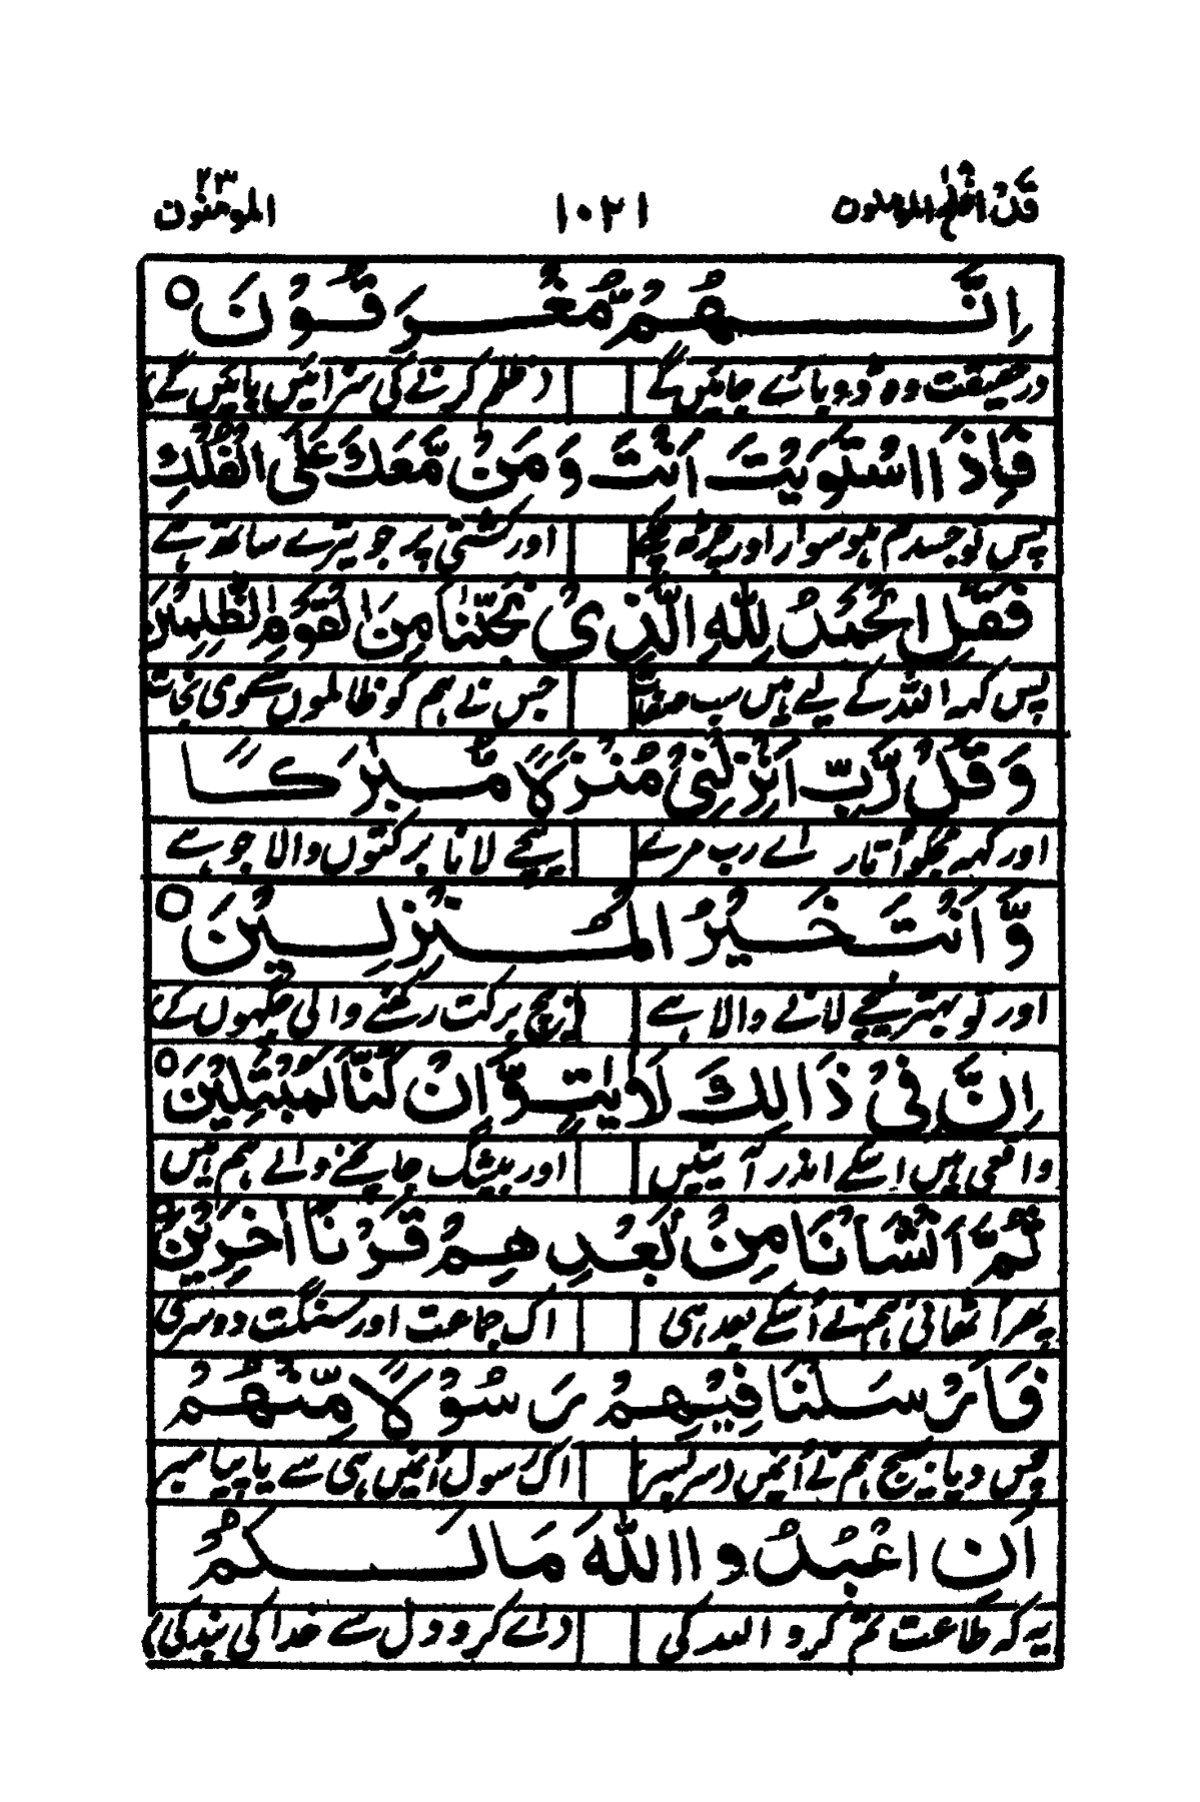 قد افلح المؤمنون ۱۸ ۱۰۲۱ المؤمنون ۲۳
اِنَّهُمْ مُّغْرَقُوْنَ ○
درحقیقت وہ ڈوبائے جائیں گے ظلم کرنے کی سزائیں پائیں گے
فَاِذَا اسْتَوَيْتَ اَنْتَ وَمَنْ مَّعَكَ عَلَى الْفُلْكِ
پس تو جسدم ہو سوار اور چڑھ چکے اور کشتی پر جو تیرے ساتھ ہے
فَقُلِ الْحَمْدُ لِلّٰهِ الَّذِیْ نَجّٰنَا مِنَ الْقَوْمِ الظّٰلِمِيْنَ
پس کہہ اللہ کے لیے ہیں سب صفات جس نے ہم کو ظالموں سے دی نجات
وَقُلْ رَّبِّ اَنْزِلْنِیْ مُنْزَلًا مُّبٰرَكًا
اور کہہ مجھکو اُتار اے رب مرے نیچے لانا برکتوں والا جو ہے
وَّاَنْتَ خَيْرُ الْمُنْزِلِيْنَ ○
اور تو بہتر نیچے لانے والا ہے بیچ برکت رکھنے والی جگہوں کے
اِنَّ فِیْ ذَالِكَ لَاٰيٰتٍ وَّاِنْ كُنَّا لَمُبْتَلِيْنَ ○
واقعی ہیں اسکے اندر آیتیں اور بیشک جانچنے والے ہم ہیں
ثُمَّ اَنْشَانَا مِنْ بَعْدِهِمْ قَرْنًا اٰخَرِيْنَ
پھر اُٹھائی ہم نے اُسکے بعد ہی اک جماعت اور سنگت دوسری
فَاَرْسَلْنَا فِيْهِمْ رَسُوْلًا مِّنْهُمْ
پس دیا بھیج ہم نے اُنمیں اک رسول اُنہیں ہی سے یا پیامبر
اَنِ اعْبُدُوا اللّٰهَ مَا لَكُمْ
یہ کہ طاعت تم کرو اللہ کی کرو دل سے خدا کی بندگی